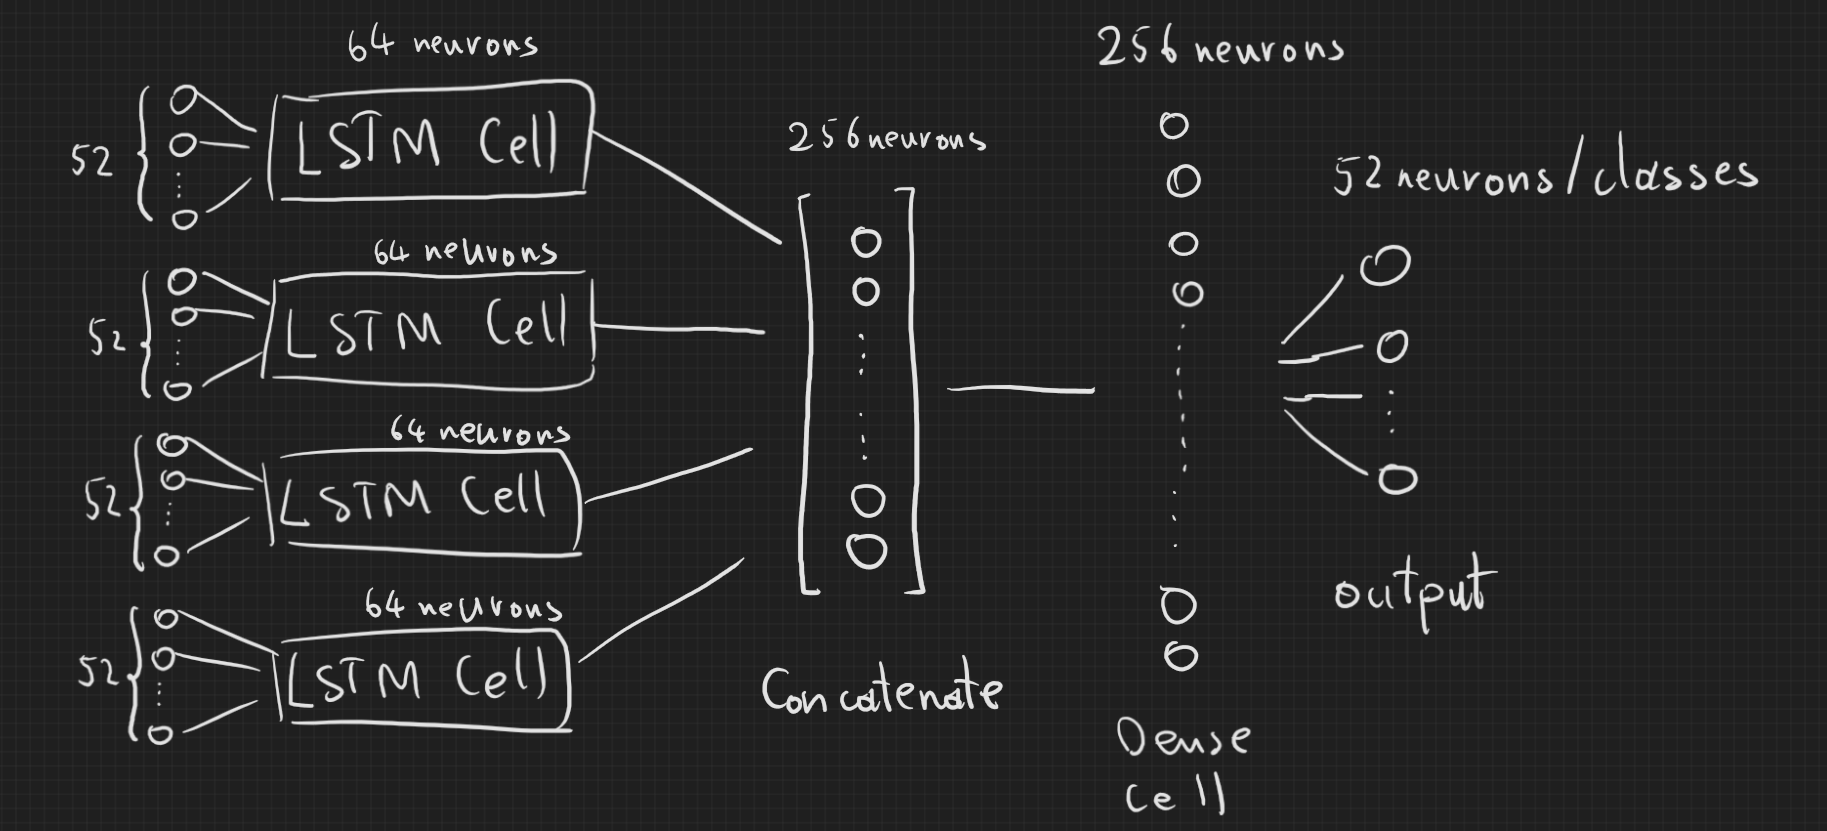 64 neurons
52
LSTM Cell
64 neurons
52
LSTM Cell
64 neurons
52
LSTM Cell
64 neurons
52
LSTM Cell
256 neurons
Concatenate
256 neurons
Dense
Cell
52 neurons/classes
output